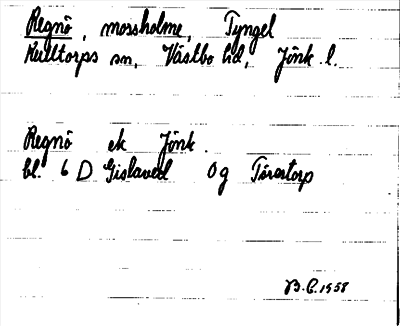 Regnö, mossholme, Tyngel
Kulltorps sn, Västbo hd, Jönk. l.
Regnö ek Jönk.
bl. 6 D Gislaved 0g Törestorp
B.C. 1958